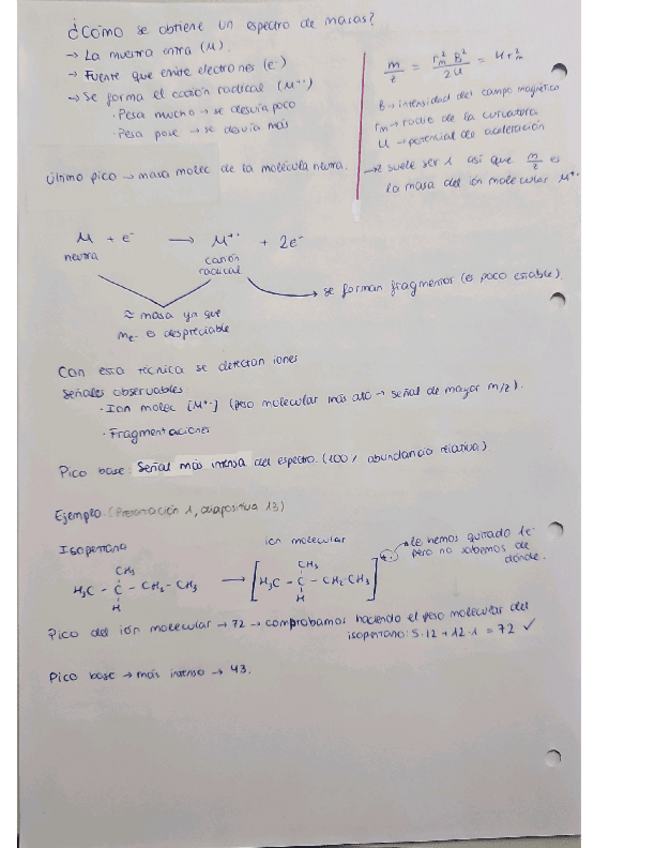 ¿Cómo se obtiene un espectro de masas?
→ La muestra entra (M).
→ Fuente que emite electrones (e⁻)
→ Se forma el catión radical (M⁺·)
· Pesa mucho → se desvía poco
· Pesa poco → se desvía más
Último pico → masa molec de la molécula neutra.
m/z = r²m B² / 2U = U r²m
B → intensidad del campo magnético
rm → radio de la curvatura
U → potencial de aceleración
→ z suele ser 1 así que m/z es
la masa del ión molecular M⁺·
M + e⁻ → M⁺· + 2e⁻
neutra
catión
radical
→ se forman fragmentos (es poco estable).
≈ masa ya que
me⁻ es despreciable
Con esta técnica se detectan iones
Señales observables:
· Ion molec [M⁺·] (peso molecular más alto → señal de mayor m/z).
· Fragmentaciones
Pico base: Señal más intensa del espectro. (100% abundancia relativa)
Ejemplo. (Presentación 1, diapositiva 13)
Isopentano
ion molecular
CH₃
H₃C - C - CH₂ - CH₃
H
→
CH₃
[H₃C - C - CH₂CH₃]
H
+·
→ le hemos quitado 1e⁻
pero no sabemos de
dónde.
Pico del ión molecular → 72 → comprobamos haciendo el peso molecular del
isopentano: 5·12 + 12·1 = 72 ✓
Pico base → más intenso → 43.